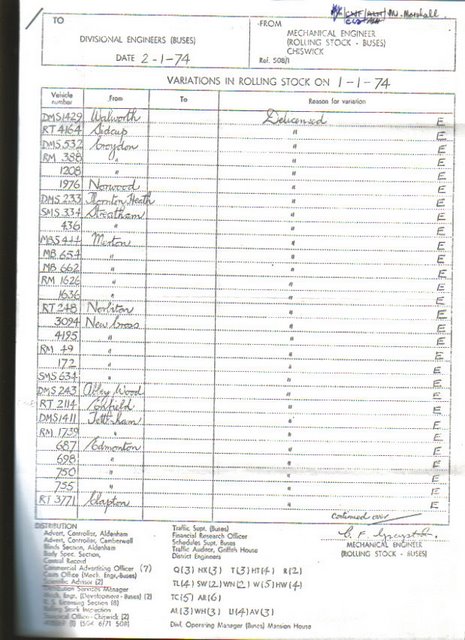 Mr. Marshall.
TO
FROM
DIVISIONAL ENGINEERS (BUSES)
MECHANICAL ENGINEER
(ROLLING STOCK - BUSES)
CHISWICK
DATE 2-1-74
Ref. 508/1
VARIATIONS IN ROLLING STOCK ON 1-1-74
Vehicle number From To Reason for variation
DMS1429 Walworth Delicensed E
RT 4164 Sidcup " E
DMS 532 Croydon " E
RM 388 " " E
1208 " " E
1976 Norwood " E
DMS 233 Thornton Heath " E
SMS 334 Streatham " E
436 " " E
MBS 444 Merton " E
MB 654 " " E
MB 662 " " E
RM 1626 " " E
1636 " " E
RT 248 Norbiton " E
3094 New Cross " E
4195 " " E
RM 49 " " E
172 " " E
SMS 634 " " E
DMS 243 Abbey Wood " E
RT 2114 Enfield " E
DMS1411 Tottenham " E
RM 1739 " " E
687 Edmonton " E
698 " " E
750 " " E
755 " " E
RT 3771 Clapton " E
continued over
MECHANICAL ENGINEER
(ROLLING STOCK - BUSES)
DISTRIBUTION
Advert. Controller, Aldenham
Advert. Controller, Camberwell
Blinds Section, Aldenham
Body Spec. Section,
Control Record
Commercial Advertising Officer (7)
Costs Office (Mech. Engr.-Buses)
Scientific Adviser (2)
Distribution Services Manager
Mech. Engr. (Development - Buses) (2)
R. S. Licensing Section (8)
Rolling Stock Inspection
Technical Office - Chiswick (2)
Traffic Supt. (Buses)
Financial Research Officer
Schedules Supt. Buses
Traffic Auditor, Griffith House
District Engineers
Q(3) NX(3) T(3) HT(4) R(2)
TL(4) SW(2) WN(2) W(5) HW(4)
TC(5) AR(6)
AL(3) WH(3) U(4) AV(3)
Divl. Operating Manager (Buses) Mansion House